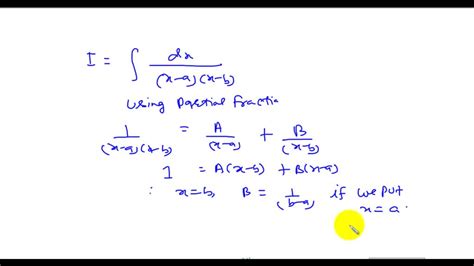 I = ∫ dx / (x-a)(x-b)
Using Partial Fractio
1 / (x-a)(x-b) = A / (x-a) + B / (x-b)
1 = A(x-b) + B(x-a)
: x=b, B = 1 / (b-a) if we put
x = a.